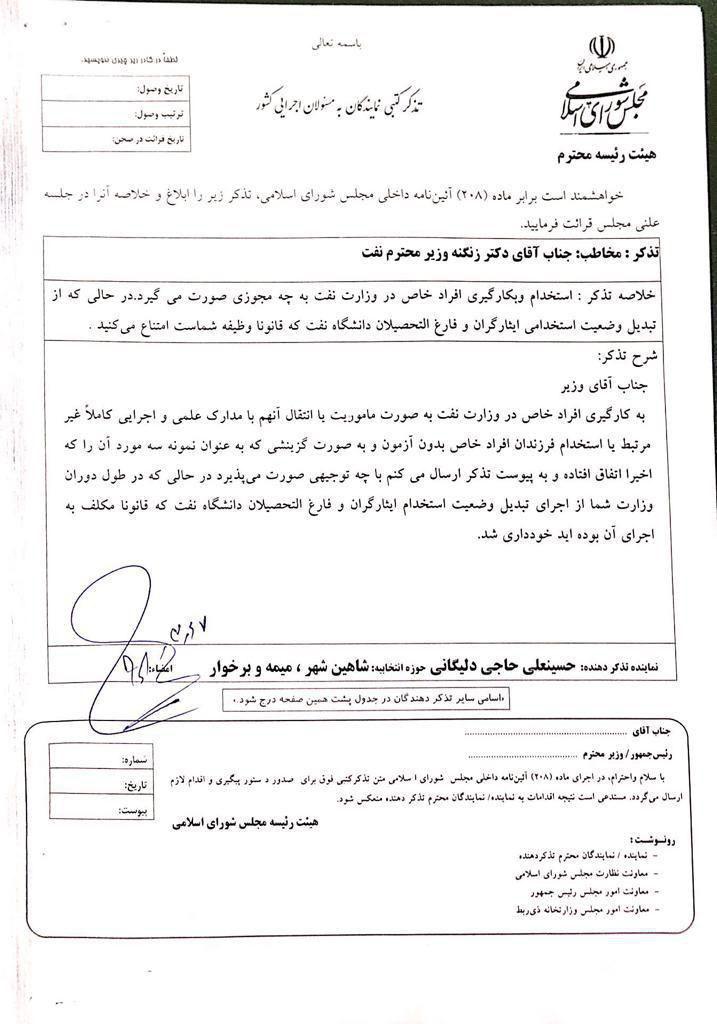 باسمه تعالی
جمهوری اسلامی ایران
مجلس شورای اسلامی
تذکر کتبی نمایندگان به مسئولان اجرایی کشور
لطفاً در کادر زیر چیزی ننویسید.
تاریخ وصول:
ترتیب وصول:
تاریخ قرائت در صحن:
هیئت رئیسه محترم
خواهشمند است برابر ماده (۲۰۸) آئین‌نامه داخلی مجلس شورای اسلامی، تذکر زیر را ابلاغ و خلاصه آنرا در جلسه
علنی مجلس قرائت فرمایید.
تذکر : مخاطب: جناب آقای دکتر زنگنه وزیر محترم نفت
خلاصه تذکر : استخدام وبکارگیری افراد خاص در وزارت نفت به چه مجوزی صورت می گیرد.در حالی که از
تبدیل وضعیت استخدامی ایثارگران و فارغ التحصیلان دانشگاه نفت که قانونا وظیفه شماست امتناع می‌کنید .
شرح تذکر:
جناب آقای وزیر
به کارگیری افراد خاص در وزارت نفت به صورت ماموریت یا انتقال آنهم با مدارک علمی و اجرایی کاملاً غیر
مرتبط یا استخدام فرزندان افراد خاص بدون آزمون و به صورت گزینشی که به عنوان نمونه سه مورد آن را که
اخیرا اتفاق افتاده و به پیوست تذکر ارسال می کنم با چه توجیهی صورت می‌پذیرد در حالی که در طول دوران
وزارت شما از اجرای تبدیل وضعیت استخدام ایثارگران و فارغ التحصیلان دانشگاه نفت که قانونا مکلف به
اجرای آن بوده اید خودداری شد.
نماینده تذکر دهنده: حسینعلی حاجی دلیگانی حوزه انتخابیه: شاهین شهر ، میمه و برخوار امضاء:
«اسامی سایر تذکر دهندگان در جدول پشت همین صفحه درج شود.»
جناب آقای ........................................
رئیس‌جمهور/ وزیر محترم ........................................
با سلام واحترام، در اجرای ماده (۲۰۸) آئین‌نامه داخلی مجلس شورای ا سلامی متن تذکرکتبی فوق برای صدور د ستور پیگیری و اقدام لازم
ارسال می‌گردد. مستدعی است نتیجه اقدامات به نماینده/ نمایندگان محترم تذکر دهنده منعکس شود.
شماره:
تاریخ:
پیوست:
هیئت رئیسه مجلس شورای اسلامی
رونوشت:
- نماینده / نمایندگان محترم تذکردهنده
- معاونت نظارت مجلس شورای اسلامی
- معاونت امور مجلس رئیس جمهور
- معاونت امور مجلس وزارتخانه ذی‌ربط